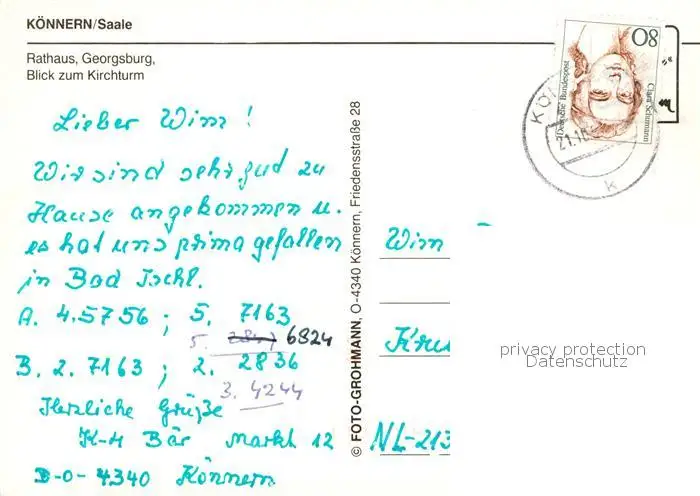 KÖNNERN/Saale
Rathaus, Georgsburg,
Blick zum Kirchturm
Lieber Wim !
Wir sind sehr gut zu
Hause angekommen u.
es hat uns prima gefallen
in Bad Ischl.
A. 4.5756 ; 5. 7163
5. 2847 6824
B. 2. 7163 ; 2. 2836
3. 4244
Herzliche Grüße
K-H Bär Markt 12
D-O-4340 Könnern
© FOTO-GROHMANN, O-4340 Könnern, Friedensstraße 28
80
Deutsche Bundespost
Clara Schumann
KÖ
21.10
k
Wim
Kru
NL-213
privacy protection
Datenschutz